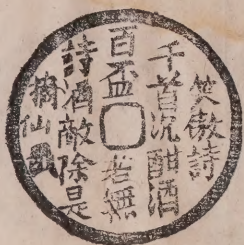 笑傲詩
千首沉酣酒
百盃若無
詩酒敵除是
謫仙